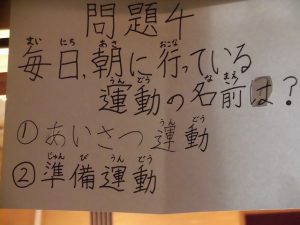 問題4
毎日、朝に行っている
運動の名前は?
① あいさつ運動
② 準備運動